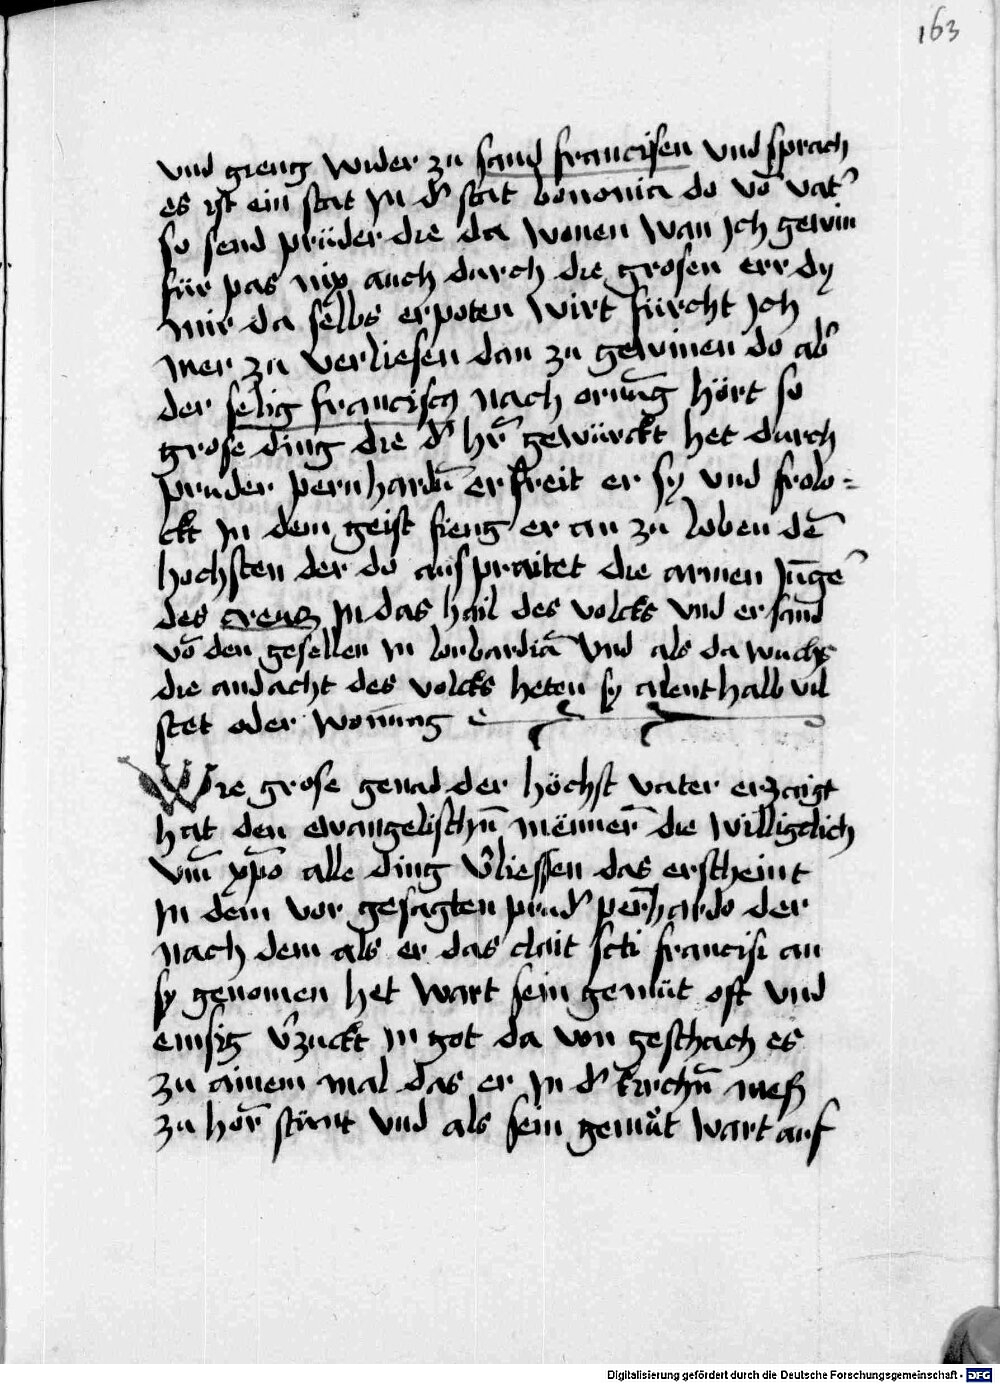 163
vnd gieng wider zu sand francisen vnd sprach
es ist ein stat in d' stat bononia do vō vat'
so send prüder die da wonen wan jch gewin
für pas nix auch durch die grosen err dy
mir da selbs erpoten wirt fürcht jch
mer zu verliesen dan zu gewinen do ab'
der selig franciscꝫ nach ornūg hört so
grose ding die d' hr̄ gewürckt het durch
pruder pernhardū erfreit er sy und frolo=
ckt in dem geist fieng er an zu loben dē
hochsten der do ausspraitet die armen jūge'
des creuz in das hail des volcks vnd er sand
vō den gesellen in lonbardiā vnd als da wuchs
die andacht des volcks heten sy alent halb vil
stet oder wonūng
Wie grose genad der höchst vater erzaigt
hat den ewangelischn̄ männer̄ die willigclich
vm̄ xp̄o alle ding v'liessen das erscheint
in dem vor gesagten prud' per̄hardo der
nach dem als er das clait scti francisi an
sy genomen het wart sein gemüt oft vnd
emsig v'zuckt in got da von geschach es
zu ainem mal das er in d' kirchn̄ meß
zu hör̄ stünt vnd als sein gemüt wart auf
Digitalisierung gefördert durch die Deutsche Forschungsgemeinschaft - DFG